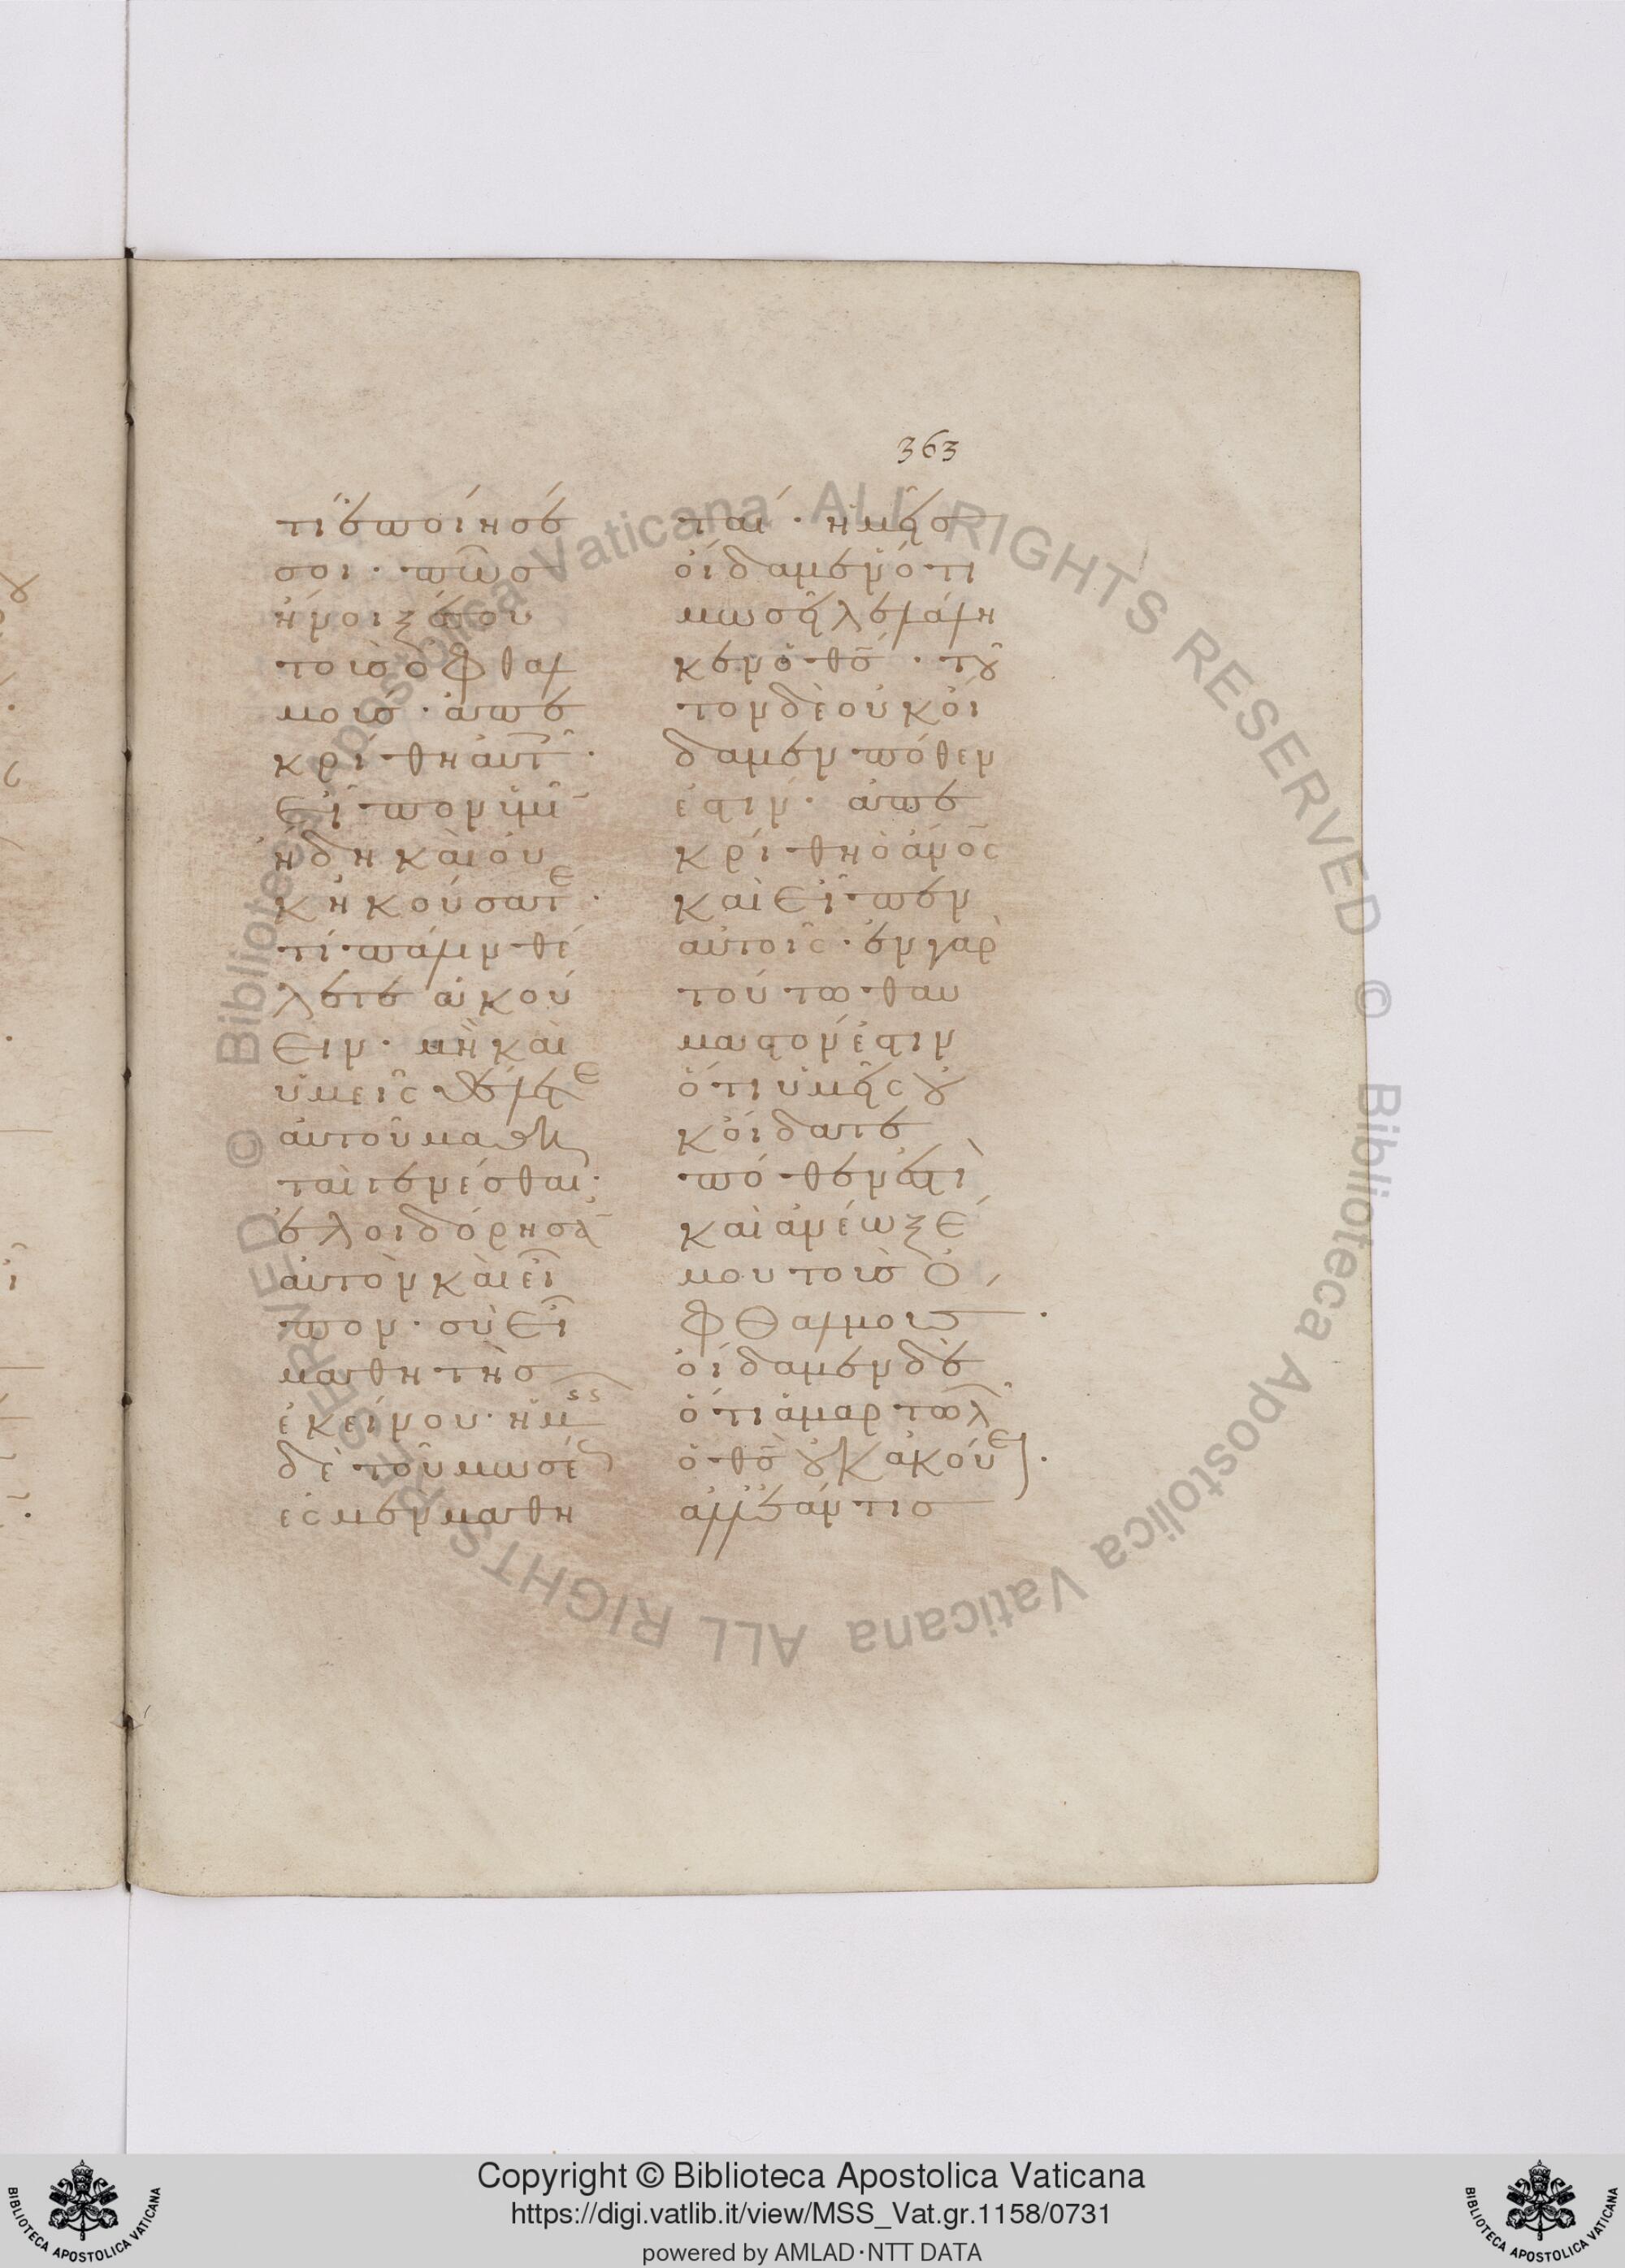 363
τί ἐποίησέ
σοι· πῶσ
ἤνοιξέ σου
τοὺσ ὀφθαλ
μούσ· ἀπε
κρίθη αὐτ̑·
εἶπον ὑμῖ
ἤδη καὶ οὐ
κ ἠκούσατε·
τί πάλιν θέ
λετε ἀκού
ειν· μὴ καὶ
ὑμεῖς θέλετε
αὐτοῦ μαθη
ταὶ γενέσθαι·
ἐλοιδόρησα̅
αὐτὸν καὶ εἶ
πον· σὺ εἶ
μαθητὴσ
ἐκείνου· ἡμεῖς
δὲ τοῦ μωσέ
ες μεν μαθη
ταί· ἡμεῖσ
οἴδαμεν ὅτι
μωσεῖ λελάλη
κεν ὁ θσ̅· τοῦ
τον δὲ οὐκ οἴ
δαμεν πόθεν
ἐστιν· ἀπε
κρίθη ὁ ἄνο̅ς
καὶ εἶπεν
αὐτοῖς· ἐν γὰρ
τούτω θαυ
μαστόν ἐστιν
ὅτι ὑμεῖς οὐ
κ οἴδατε
πόθεν ἐστὶ
καὶ ἀνέωξέ
μου τοὺσ ὀ
φθαλμούσ·
οἴδαμεν δὲ
ὅτι ἁμαρτωλ
ὁ θσ̅ οὐκ ἀκούει·
ἀλλ' ἐάν τισ
Copyright © Biblioteca Apostolica Vaticana
https://digi.vatlib.it/view/MSS_Vat.gr.1158/0731
powered by AMLAD·NTT DATA
BIBLIOTECA APOSTOLICA VATICANA
BIBLIOTECA APOSTOLICA VATICANA
© Biblioteca Apostolica Vaticana ALL RIGHTS RESERVED © Biblioteca Apostolica Vaticana ALL RIGHTS RESERVED